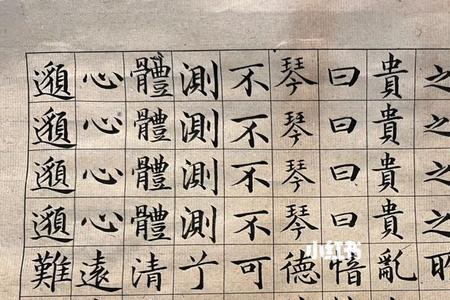 之之之之
貴貴貴貴亂
曰曰曰曰愔
琴琴琴琴德
不不不不可
測測測測兮
體體體體清
心心心心遠
邈邈邈邈難
小红书